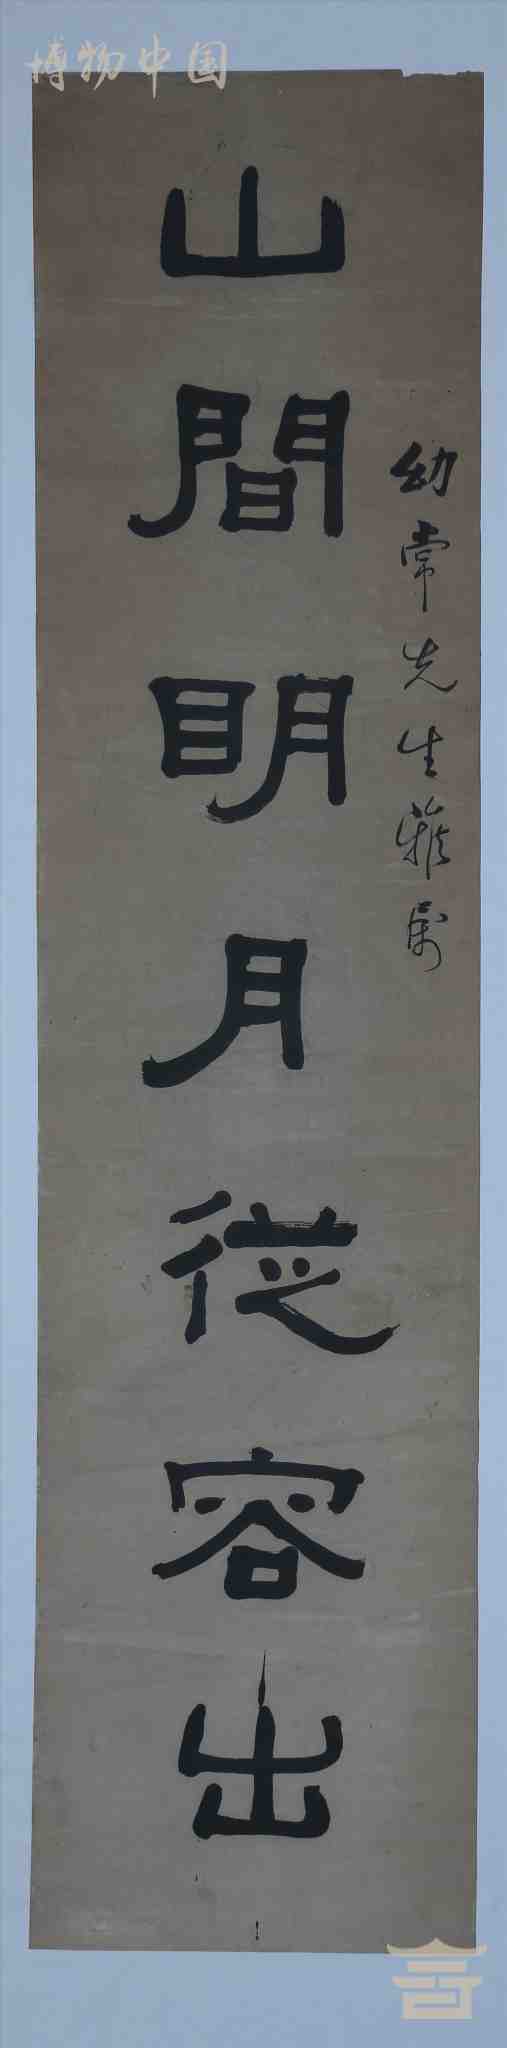 博物中国
幼常先生雅属
山間明月從容出